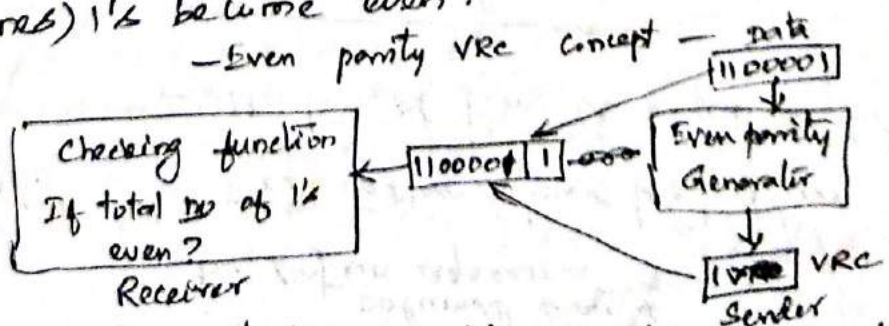 nes) 1's become even.
— Even parity VRC concept —
Data
1100001
Even parity
Generator
1 VRC
Sender
1100001 1
Checking function
If total no of 1's
even?
Receiver